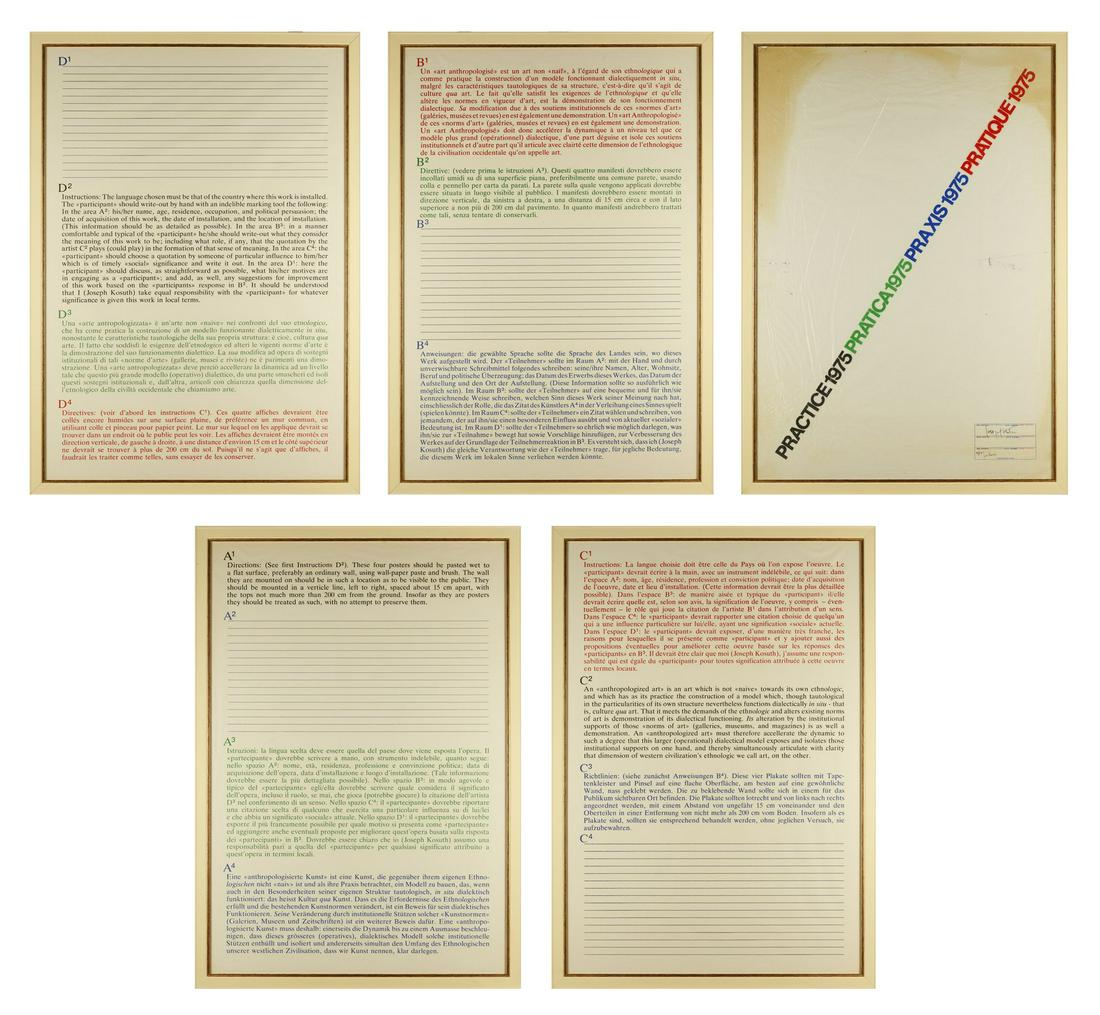 D¹
D²
Instructions: The language chosen must be that of the country where this work is installed.
The «participant» should write-out by hand with an indelible marking tool the following:
In the area A²: his/her name, age, residence, occupation, and political persuasion; the
date of acquisition of this work, the date of installation, and the location of installation.
(This information should be as detailed as possible). In the area B³: in a manner
comfortable and typical of the «participant» he/she should write-out what they consider
the meaning of this work to be; including what role, if any, that the quotation by the
artist C² plays (could play) in the formation of that sense of meaning. In the area C⁴: the
«participant» should choose a quotation by someone of particular influence to him/her
which is of timely «social» significance and write it out. In the area D¹: here the
«participant» should discuss, as straightforward as possible, what his/her motives are
in engaging as a «participant»; and add, as well, any suggestions for improvement
of this work based on the «participants» response in B³. It should be understood
that I (Joseph Kosuth) take equal responsibility with the «participant» for whatever
significance is given this work in local terms.
D³
Una «arte antropologizzata» è un'arte non «naive» nei confronti del suo etnologico,
che ha come pratica la costruzione di un modello funzionante dialetticamente in situ,
nonostante le caratteristiche tautologiche della sua propria struttura: è cioè, cultura qua
arte. Il fatto che soddisfi le esigenze dell'etnologico ed alteri le vigenti norme d'arte è
la dimostrazione del suo funzionamento dialettico. La sua modifica ad opera di sostegni
istituzionali di tali «norme d'arte» (gallerie, musei e riviste) ne è parimenti una dimo-
strazione. Una «arte antropologizzata» deve perciò accellerare la dinamica ad un livello
tale che questo più grande modello (operativo) dialettico, da una parte smascheri ed isoli
questi sostegni istituzionali e, dall'altra, articoli con chiarezza quella dimensione del-
l'etnologico della civiltà occidentale che chiamiamo arte.
D⁴
Directives: (voir d'abord les instructions C¹). Ces quatre affiches devraient être
collés encore humides sur une surface plaine, de préférence un mur commun, en
utilisant colle et pinceau pour papier peint. Le mur sur lequel on les applique devrait se
trouver dans un endroit où le public peut les voir. Les affiches devraient être montés en
direction verticale, de gauche à droite, à une distance d'environ 15 cm et le côté supérieur
ne devrait se trouver à plus de 200 cm du sol. Puisqu'il ne s'agit que d'affiches, il
faudrait les traiter comme telles, sans essayer de les conserver.
B¹
Un «art anthropologisé» est un art non «naïf», à l'égard de son ethnologique qui a
comme pratique la construction d'un modèle fonctionnant dialectiquement in situ,
malgré les caractéristiques tautologiques de sa structure, c'est-à-dire qu'il s'agit de
culture qua art. Le fait qu'elle satisfit les exigences de l'ethnologique et qu'elle
altère les normes en vigueur d'art, est la démonstration de son fonctionnement
dialectique. Sa modification due à des soutiens institutionnels de ces «normes d'art»
(galéries, musées et revues) en est également une demonstration. Un «art Anthropologisé»
de ces «norms d'art» (galéries, musées et revues) en est également une demonstration.
Un «art Anthropologisé» doit donc accélérer la dynamique à un niveau tel que ce
modèle plus grand (opérationnel) dialectique, d'une part déguine et isole ces soutiens
institutionnels et d'autre part qu'il articule avec clairté cette dimension de l'ethnologique
de la civilisation occidentale qu'on appelle art.
B²
Direttive: (vedere prima le istruzioni A³). Questi quattro manifesti dovrebbero essere
incollati umidi su di una superficie piana, preferibilmente una comune parete, usando
colla e pennello per carta da parati. La parete sulla quale vengono applicati dovrebbe
essere situata in luogo visibile al pubblico. I manifesti dovrebbero essere montati in
direzione verticale, da sinistra a destra, a una distanza di 15 cm circa e con il lato
superiore a non più di 200 cm dal pavimento. In quanto manifesti andrebbero trattati
come tali, senza tentare di conservarli.
B³
B⁴
Anweisungen: die gewählte Sprache sollte die Sprache des Landes sein, wo dieses
Werk aufgestellt wird. Der «Teilnehmer» sollte im Raum A²: mit der Hand und durch
unverwischbare Schreibmittel folgendes schreiben: seine/ihre Namen, Alter, Wohnsitz,
Beruf und politische Überzeugung; das Datum des Erwerbs dieses Werkes, das Datum der
Aufstellung und den Ort der Aufstellung. (Diese Information sollte so ausführlich wie
möglich sein). Im Raum B³: sollte der «Teilnehmer» auf eine bequeme und für ihn/sie
kennzeichnende Weise schreiben, welchen Sinn dieses Werk seiner Meinung nach hat,
einschliesslich der Rolle, die das Zitat des Künstlers A⁴ in der Verleihung eines Sinnes spielt
(spielen könnte). Im Raum C⁴: sollte der «Teilnehmer» ein Zitat wählen und schreiben, von
jemanden, der auf ihn/sie einen besonderen Einfluss ausübt und von aktueller «sozialer»
Bedeutung ist. Im Raum D¹: sollte der «Teilnehmer» so ehrlich wie möglich darlegen, was
ihn/sie zur «Teilnahme» bewegt hat sowie Vorschläge hinzufügen, zur Verbesserung des
Werkes auf der Grundlage der Teilnehmerreaktion in B³. Es versteht sich, dass ich (Joseph
Kosuth) die gleiche Verantwortung wie der «Teilnehmer» trage, für jegliche Bedeutung,
die diesem Werk im lokalen Sinne verliehen werden könnte.
PRACTICE 1975 PRATICA 1975 PRAXIS 1975 PRATIQUE 1975
A¹
Directions: (See first Instructions D²). These four posters should be pasted wet to
a flat surface, preferably an ordinary wall, using wall-paper paste and brush. The wall
they are mounted on should be in such a location as to be visible to the public. They
should be mounted in a verticle line, left to right, spaced about 15 cm apart, with
the tops not much more than 200 cm from the ground. Insofar as they are posters
they should be treated as such, with no attempt to preserve them.
A²
A³
Istruzioni: la lingua scelta deve essere quella del paese dove viene esposta l'opera. Il
«partecipante» dovrebbe scrivere a mano, con strumento indelebile, quanto segue:
nello spazio A²: nome, età, residenza, professione e convinzione politica; data di
acquisizione dell'opera, data d'installazione e luogo d'installazione. (Tale informazione
dovrebbe essere la più dettagliata possibile). Nello spazio B³: in modo agevole e
tipico del «partecipante» egli/ella dovrebbe scrivere quale considera il significato
dell'opera, incluso il ruolo, se mai, che gioca (potrebbe giocare) la citazione dell'artista
D³ nel conferimento di un senso. Nello spazio C⁴: il «partecipante» dovrebbe riportare
una citazione scelta di qualcuno che esercita una particolare influenza su di lui/lei
e che abbia un significato «sociale» attuale. Nello spazio D¹: il «partecipante» dovrebbe
esporre il più francamente possibile per quale motivo si presenta come «partecipante»
ed aggiungere anche eventuali proposte per migliorare quest'opera basata sulla risposta
dei «partecipanti» in B³. Dovrebbe essere chiaro che io (Joseph Kosuth) assumo una
responsabilità pari a quella del «partecipante» per qualsiasi significato attribuito a
quest'opera in termini locali.
A⁴
Eine «anthropologisierte Kunst» ist eine Kunst, die gegenüber ihrem eigenen Ethno-
logischen nicht «naiv» ist und als ihre Praxis betrachtet, ein Modell zu bauen, das, wenn
auch in den Besonderheiten seiner eigenen Struktur tautologisch, in situ dialektisch
funktioniert: das heisst Kultur qua Kunst. Dass es die Erfordernisse des Ethnologischen
erfüllt und die bestehenden Kunstnormen verändert, ist ein Beweis für sein dialektisches
Funktionieren. Seine Veränderung durch institutionelle Stützen solcher «Kunstnormen»
(Galerien, Museen und Zeitschriften) ist ein weiterer Beweis dafür. Eine «anthropo-
logisierte Kunst» muss deshalb: einerseits die Dynamik bis zu einem Ausmasse beschleu-
nigen, dass dieses grösseres (operatives), dialektisches Modell solche institutionelle
Stützen enthüllt und isoliert und andererseits simultan den Umfang des Ethnologischen
unserer westlichen Zivilisation, dass wir Kunst nennen, klar darlegen.
C¹
Instructions: La langue choisie doit être celle du Pays où l'on expose l'oeuvre. Le
«participant» devrait écrire à la main, avec un instrument indélébile, ce qui suit: dans
l'espace A²: nom, âge, résidence, profession et conviction politique; date d'acquisition
de l'oeuvre, date et lieu d'installation. (Cette information devrait être la plus détaillée
possible). Dans l'espace B³: de manière aisée et typique du «participant» il/elle
devrait écrire quelle est, selon son avis, la signification de l'oeuvre, y compris – éven-
tuellement – le rôle qui joue la citation de l'artiste B¹ dans l'attribution d'un sens.
Dans l'espace C⁴: le «participant» devrait rapporter une citation choisie de quelqu'un
qui a une influence particulière sur lui/elle, ayant une signification «sociale» actuelle.
Dans l'espace D¹: le «participant» devrait exposer, d'une manière très franche, les
raisons pour lesquelles il se présente comme «participant» et y ajouter aussi des
propositions éventuelles pour améliorer cette oeuvre basée sur les réponses des
«participants» en B³. Il devrait être clair que moi (Joseph Kosuth), j'assume une respon-
sabilité qui est égale du «participant» pour toutes signification attribuée à cette oeuvre
en termes locaux.
C²
An «anthropologized art» is an art which is not «naive» towards its own ethnologic,
and which has as its practice the construction of a model which, though tautological
in the particularities of its own structure nevertheless functions dialectically in situ - that
is, culture qua art. That it meets the demands of the ethnologic and alters existing norms
of art is demonstration of its dialectical functioning. Its alteration by the institutional
supports of those «norms of art» (galleries, museums, and magazines) is as well a
demonstration. An «anthropologized art» must therefore accelerate the dynamic to
such a degree that this larger (operational) dialectical model exposes and isolates those
institutional supports on one hand, and thereby simultaneously articulate with clarity
that dimension of western civilization's ethnologic we call art, on the other.
C³
Richtlinien: (siehe zunächst Anweisungen B⁴). Diese vier Plakate sollten mit Tape-
tenkleister und Pinsel auf eine flache Oberfläche, am besten auf eine gewöhnliche
Wand, nass geklebt werden. Die zu beklebende Wand sollte sich in einem für das
Publikum sichtbaren Ort befinden. Die Plakate sollten lotrecht und von links nach rechts
angeordnet werden, mit einem Abstand von ungefähr 15 cm voneinander und den
Oberteilen in einer Entfernung von nicht mehr als 200 cm vom Boden. Insofern als es
Plakate sind, sollten sie entsprechend behandelt werden, ohne jeglichen Versuch, sie
aufzubewahren.
C⁴